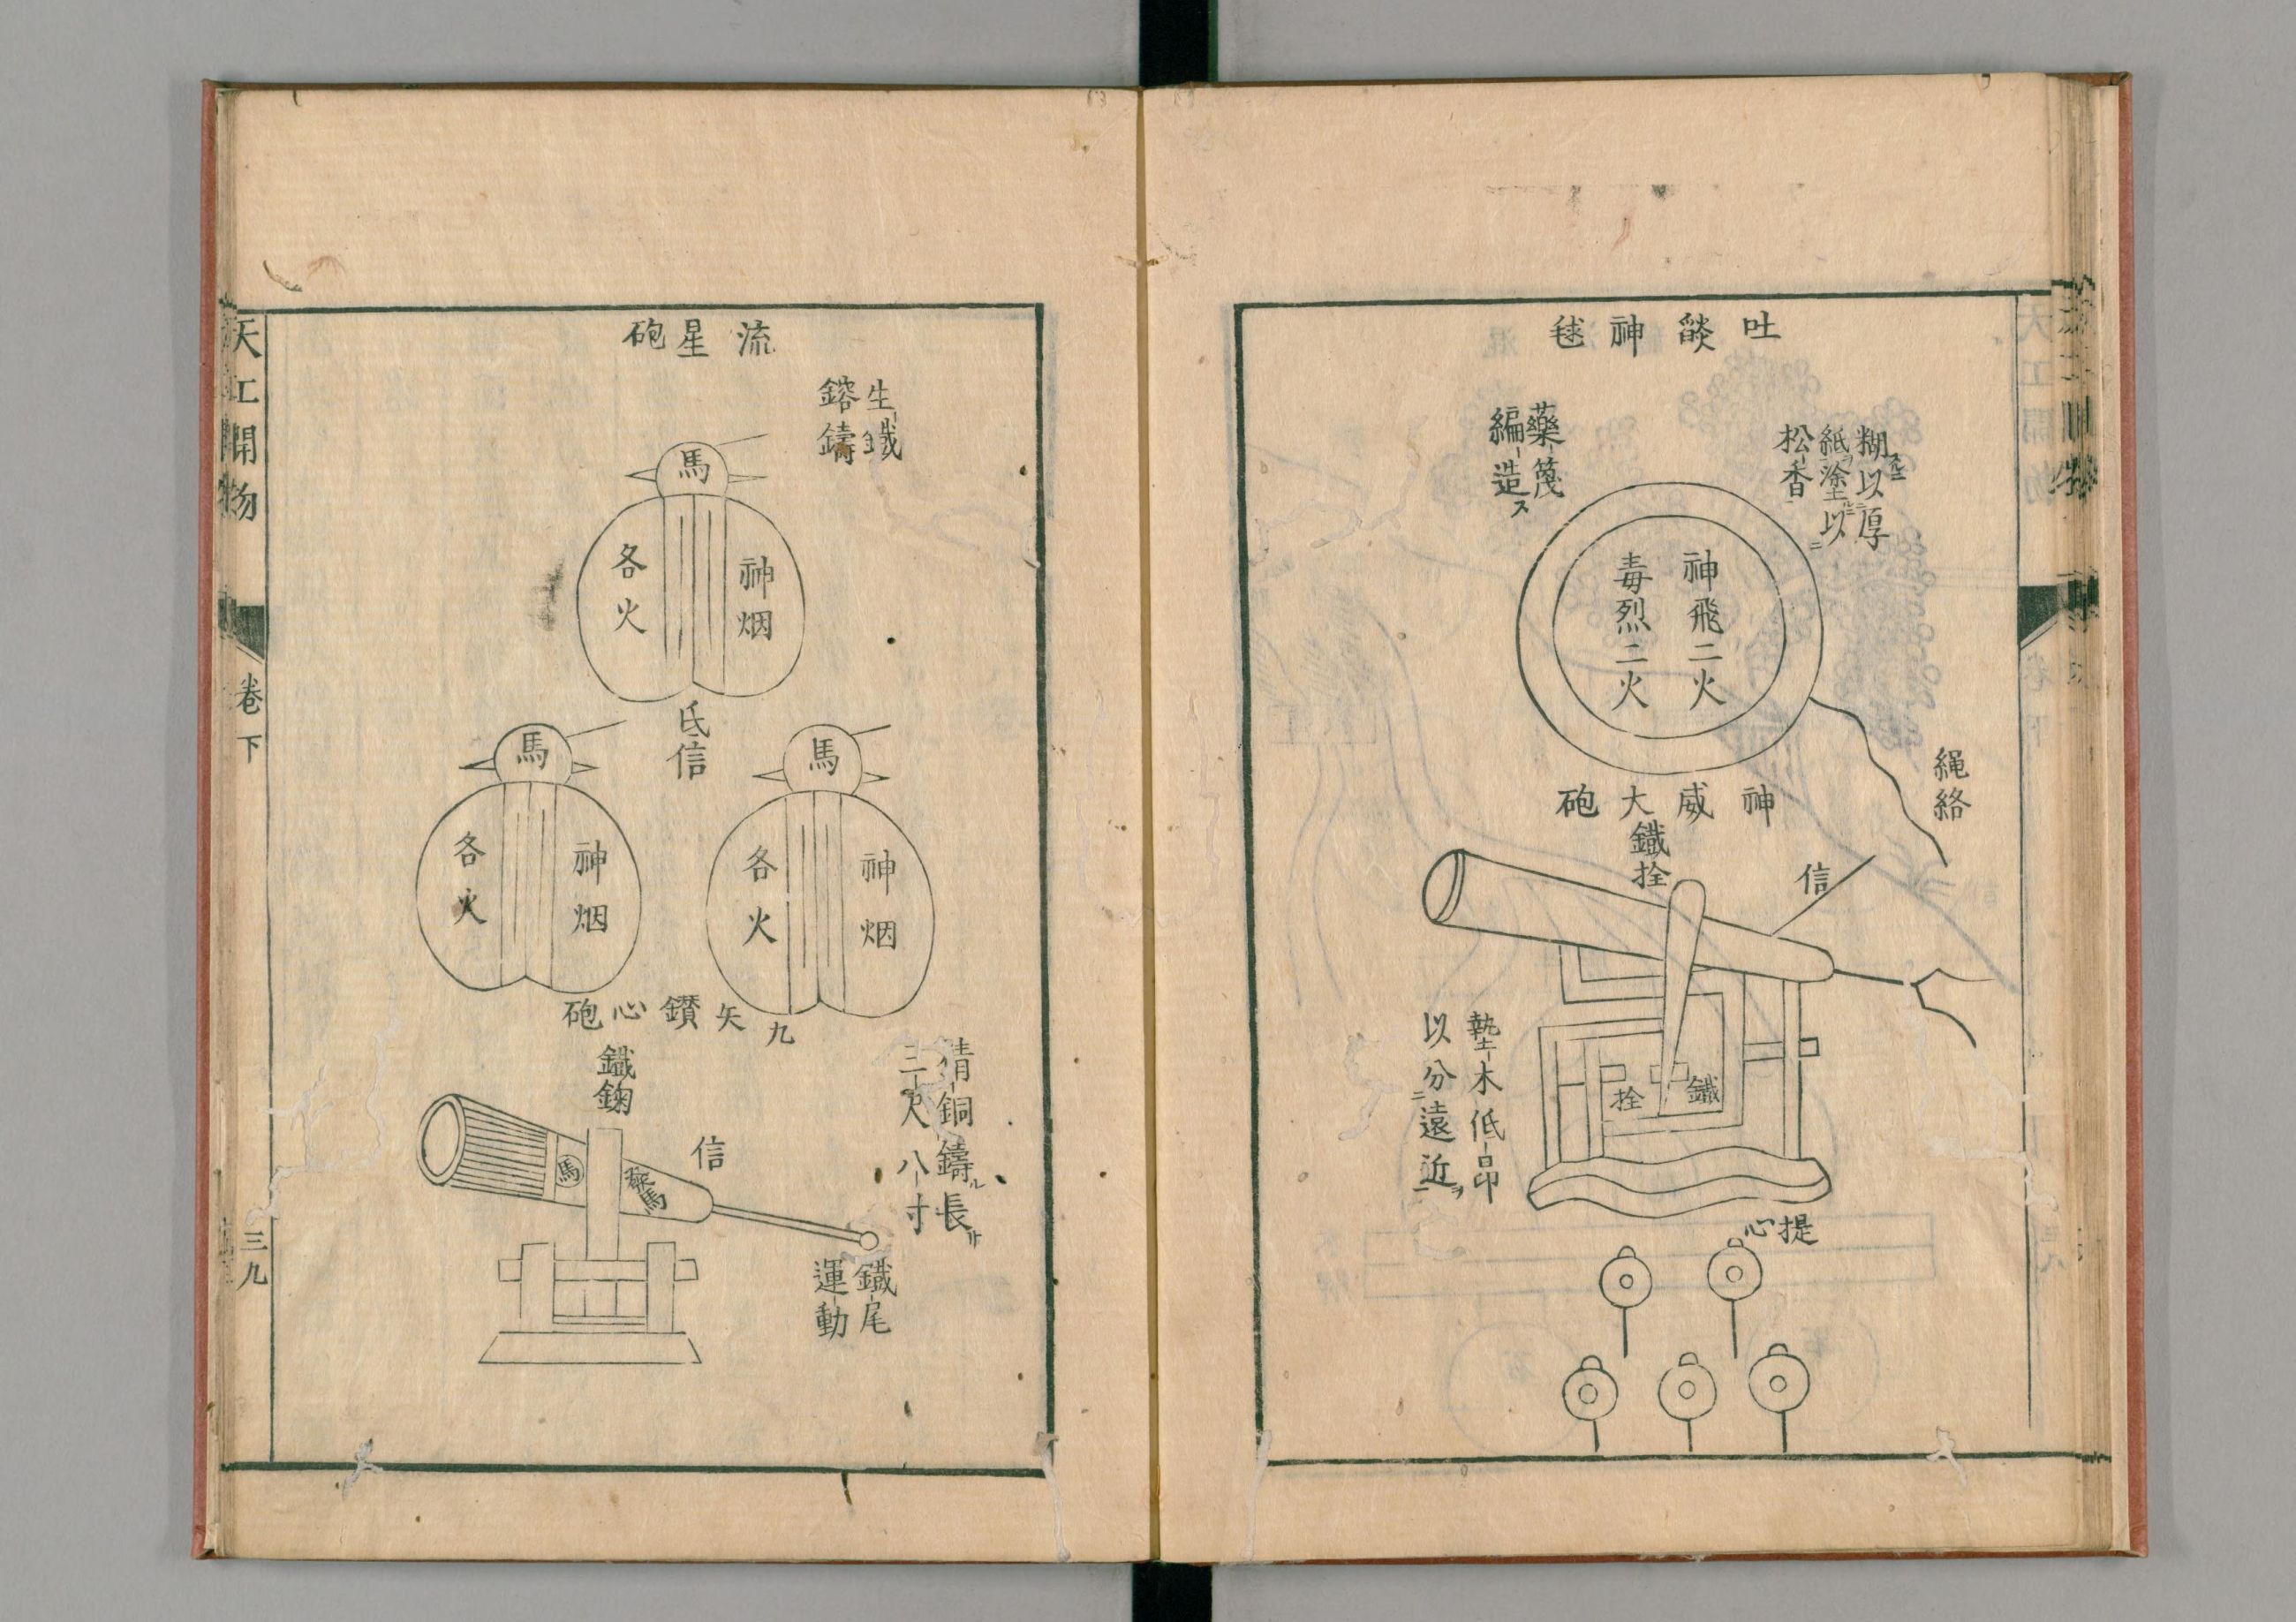 吐燄神毬
糊スルニ以厚
紙ヲ塗ルニ以ニ
松香
藥篾
編造ス
神飛二火
毒烈二火
繩絡
神威大砲
鐵拴
信
鐵
拴
墊木低昂
以分ニ遠近ヲ一
提心
流星砲
生鐵
鎔鑄
馬
神烟
各火
氐信
馬
神烟
各火
馬
神烟
各火
九矢鑽心砲
鐵鋦
精銅鑄ル長サ
三尺八寸
信
馬
鐵尾
運動
天工開物
卷下
三九